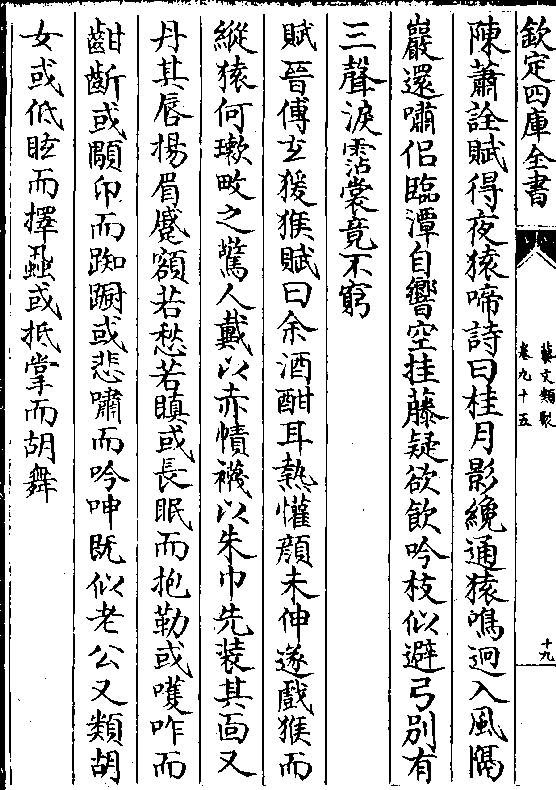 欽定四庫全書
藝文類聚
卷九十五
十九
陳蕭詮賦得夜猿啼詩曰桂月影纔通猿鳴迥入風隔
巖還嘯侣臨潭自響空挂藤疑欲飲吟枝似避弓别有
三聲淚霑裳竟不窮
賦晉傅玄猨猴賦曰余酒酣耳熱懽顔未伸遂戲猴而
縱猿何瓌畋之驚人戴以赤幘襪以朱巾先装其面又
丹其唇揚眉蹙額若愁若瞋或長眠而抱勒或嚄咋而
齜齗或顒卬而踟蹰或悲嘯而吟呻既似老公又類胡
女或低眩而擇蝨或抵掌而胡舞